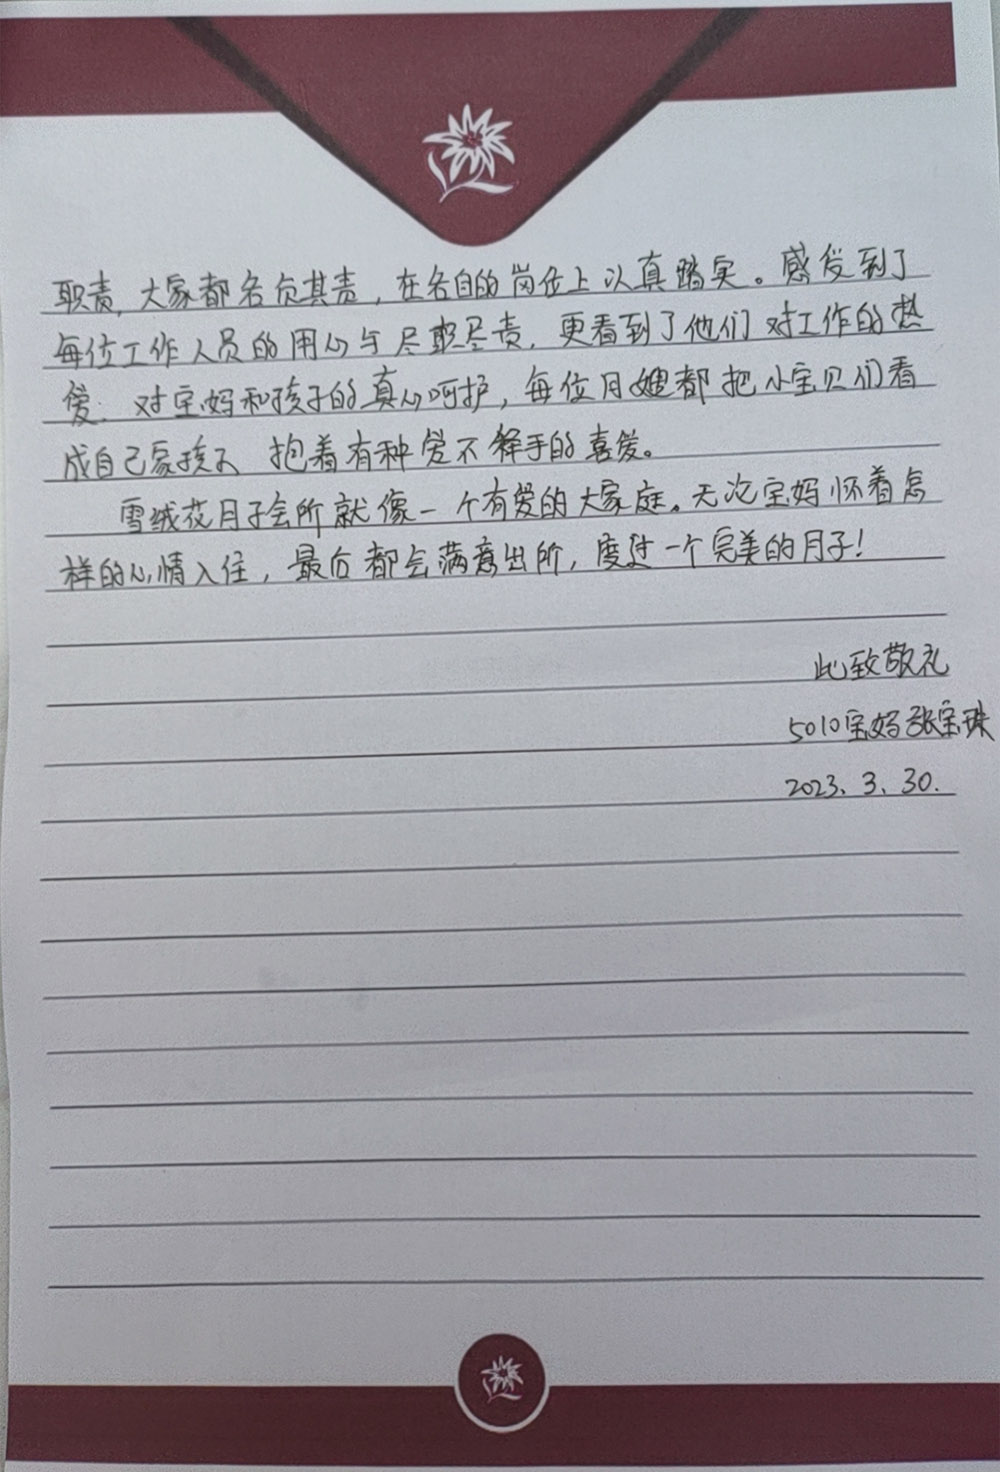 职责，大家都各负其责，在各自的岗位上认真踏实。感受到了
每位工作人员的用心与尽职尽责，更看到了他们对工作的热
爱，对宝妈和孩子的真心呵护，每位月嫂都把小宝贝们看
成自己家孩子 抱着有种爱不释手的喜爱。
雪绒花月子会所就像一个有爱的大家庭。无论宝妈怀着怎
样的心情入住，最后都会满意出所，度过一个完美的月子！
此致敬礼
5010宝妈张宝珠
2023、3、30.